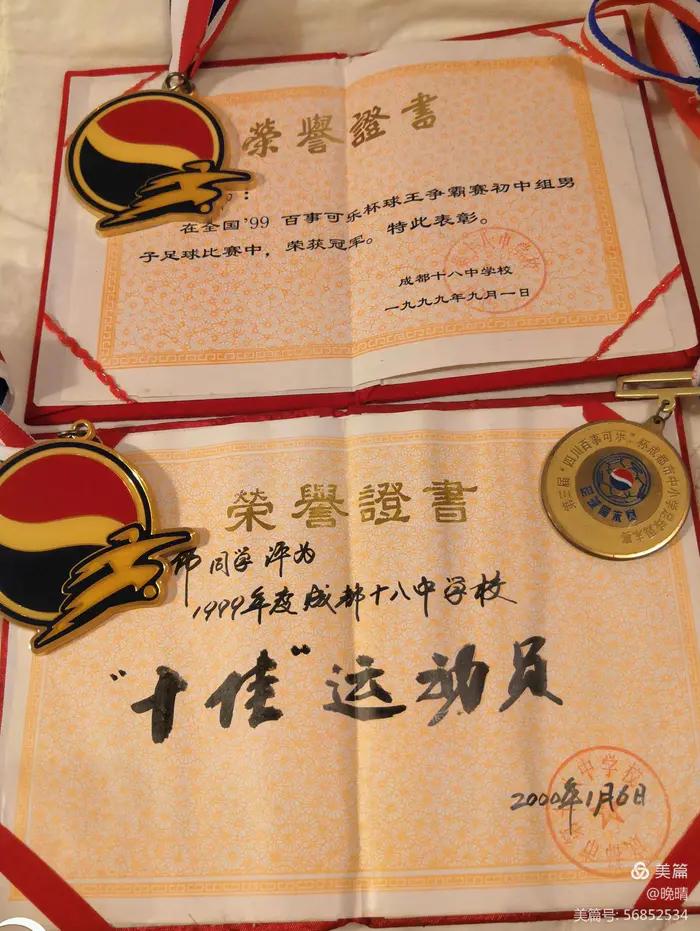 榮譽證書
：
在全国'99 百事可乐杯球王争霸赛初中组男
子足球比赛中，荣获冠军。特此表彰。
成都十八中学校
一九九九年九月一日
十八中学校
第三届"四川百事可乐"杯成都市中小学足球周末赛
足球周末赛
榮譽證書
同学 评为
1999年度成都十八中学校
"十佳"运动员
2000年1月6日
中学校
美篇
@晚晴
美篇号: 56852534